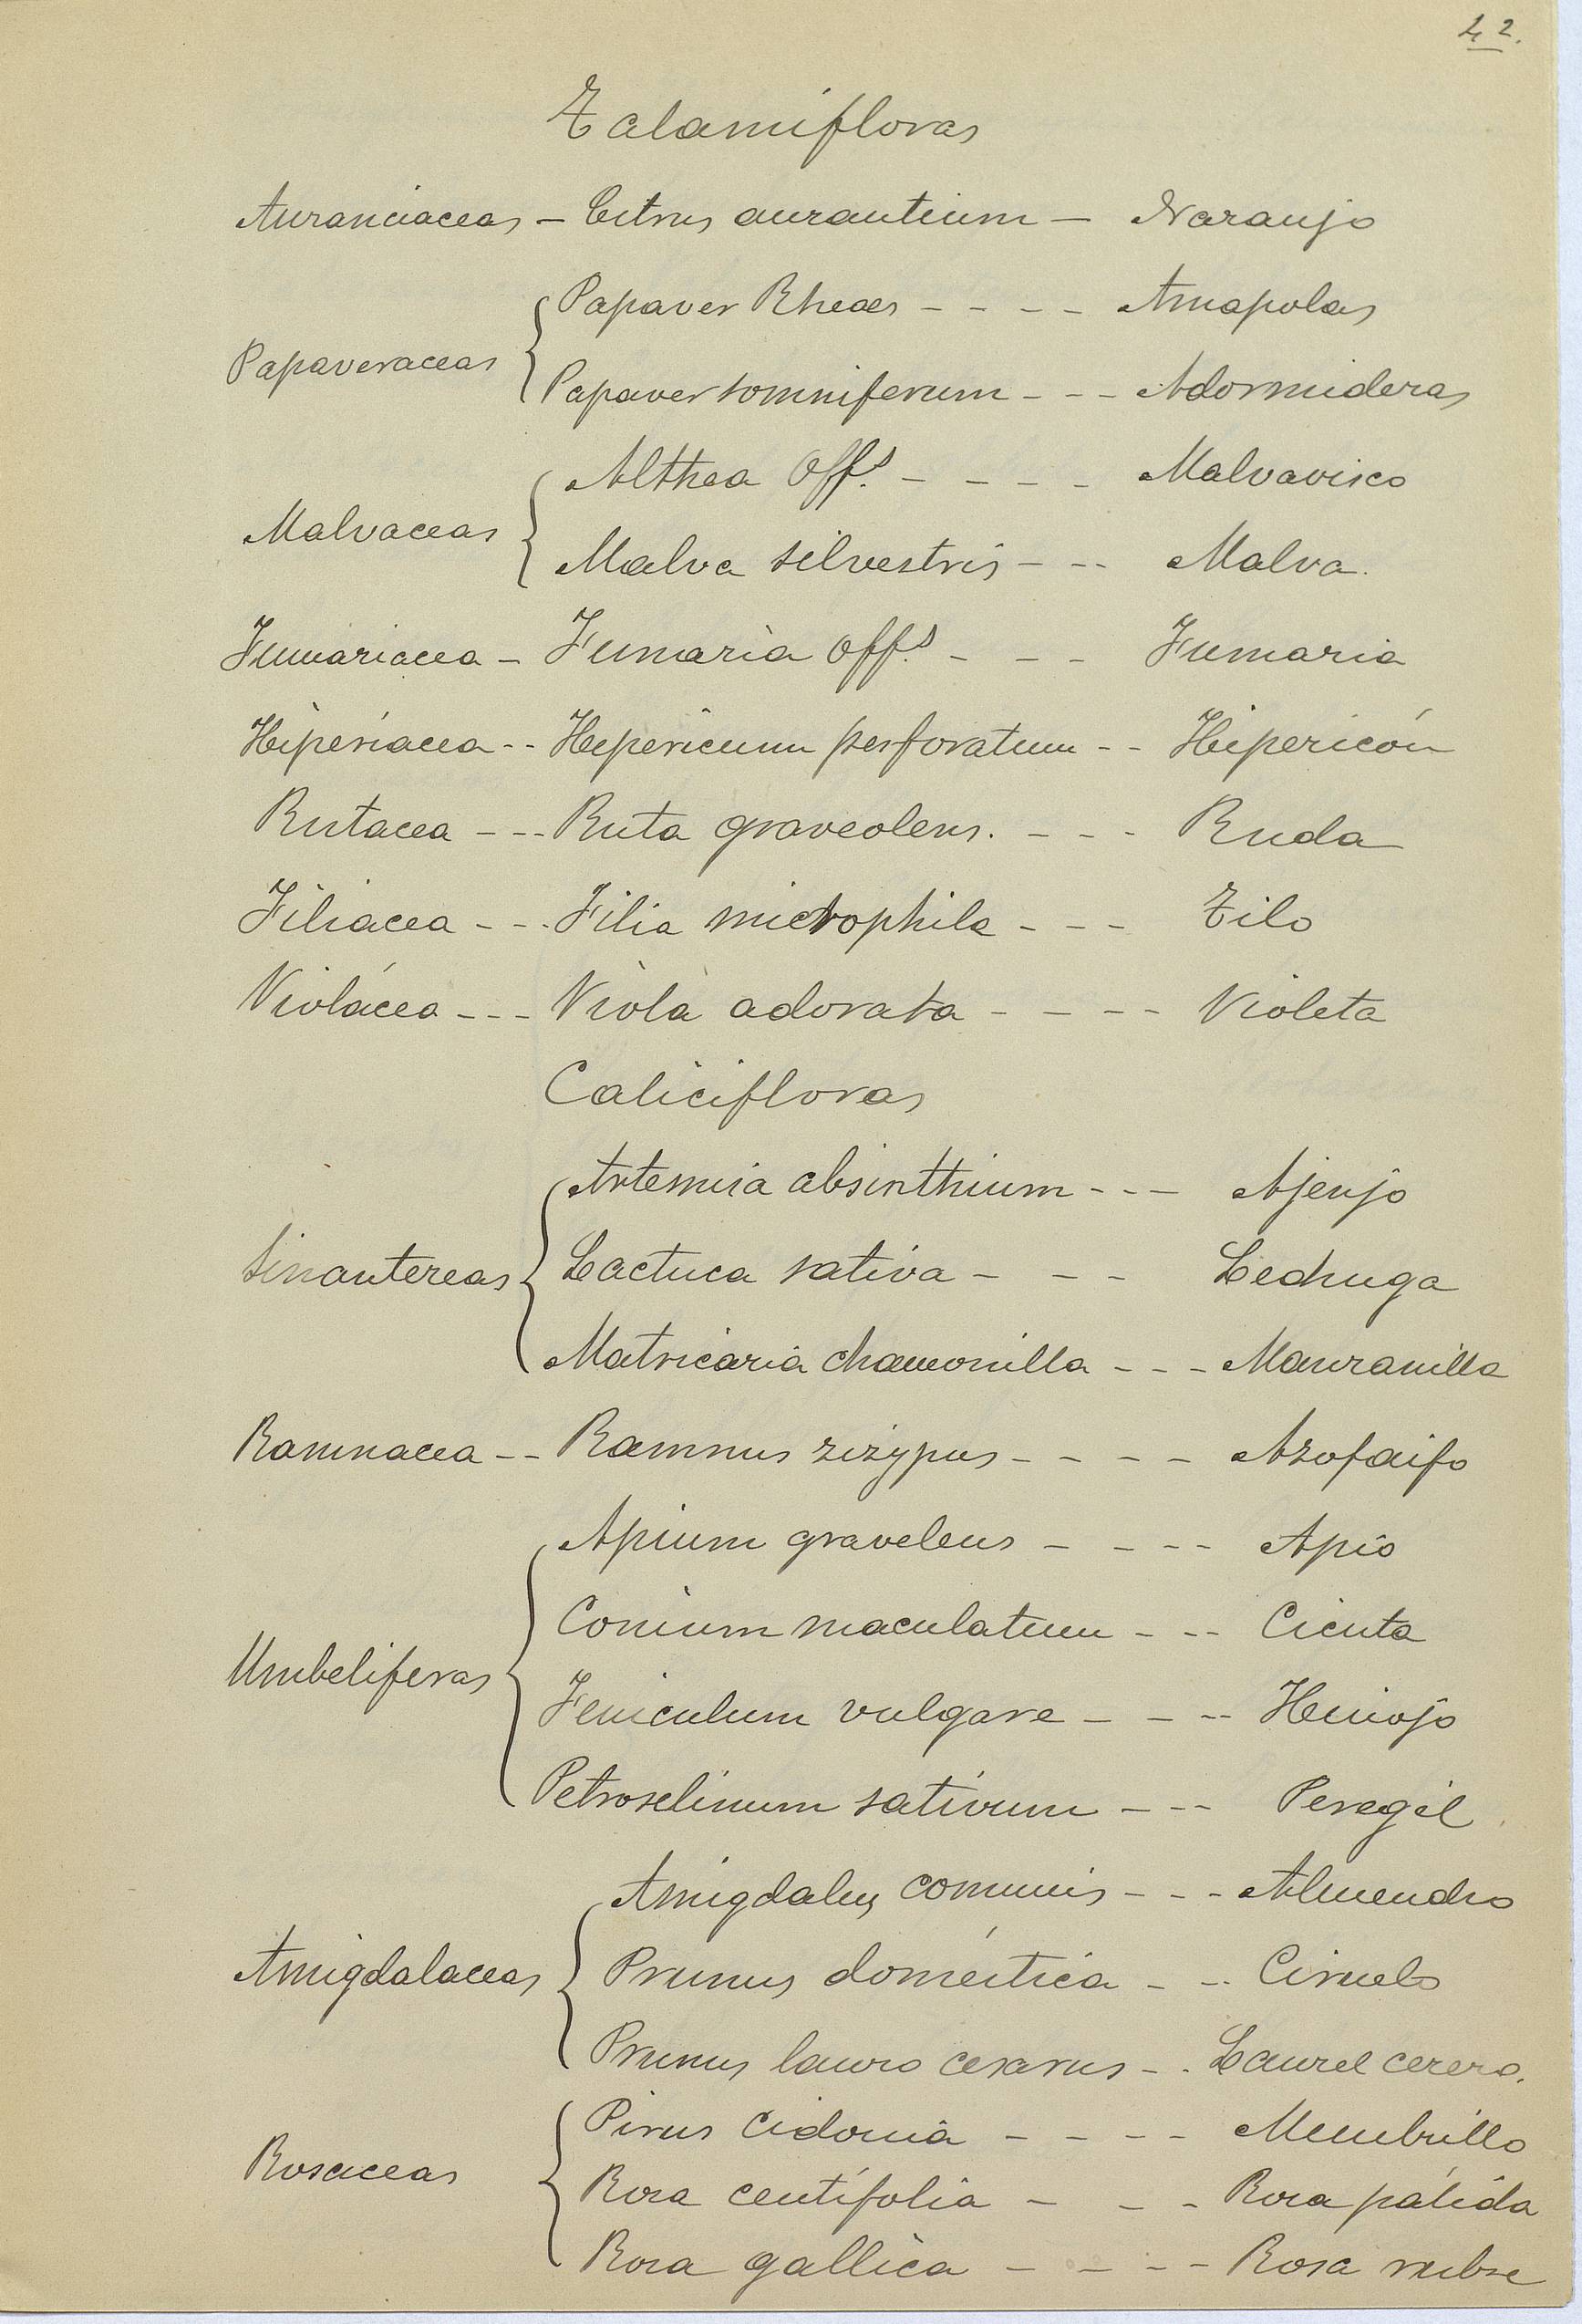 42.
Talamifloras
Auranciaceas - Citrus aurantium - Naranjo
Papaver Rheaes - - - - Amapolas
Papaveraceas
Papaver somniferum - - - Adormideras
Althea Off.s - - - - Malvavisco
Malvaceas
Malva silvestris - -- Malva.
Fumariacea - Fumaria Off.s - - - Fumaria
Hiperiacea -- Hepericum perforatum -- Hipericón
Rutacea - -- Ruta graveolens. - - - Ruda
Filiacea - -- Filia microphila - - - Tilo
Violácea - - - Viola adorata - - - - Violeta
Calicifloras
Artemia absinthium - - - Ajenjo
Lactuca sativa - - - Lechuga
Sinantereas
Matricaria chamonilla - - - Manzanilla
Ramnacea -- Ramnus zizypus - - - - Azofaifo
Apium graveleus - - -- Apio
Conium maculatum - -- Cicuta
Umbeliferas
Feniculum vulgare - - -- Hinojo
Petroselinum sativum - -- Peregil.
Amigdalus comunis - - - Almendro
Amigdalaceas Prunus doméstica - -- Ciruelo
Prunus lauro cesarus - . Laurel cerezo.
Pirus Cidonia - - - - Membrillo
Rosaceas
Rosa centifolia - - - Rosa pálida
Rosa gallica - - - - Rosa rubre